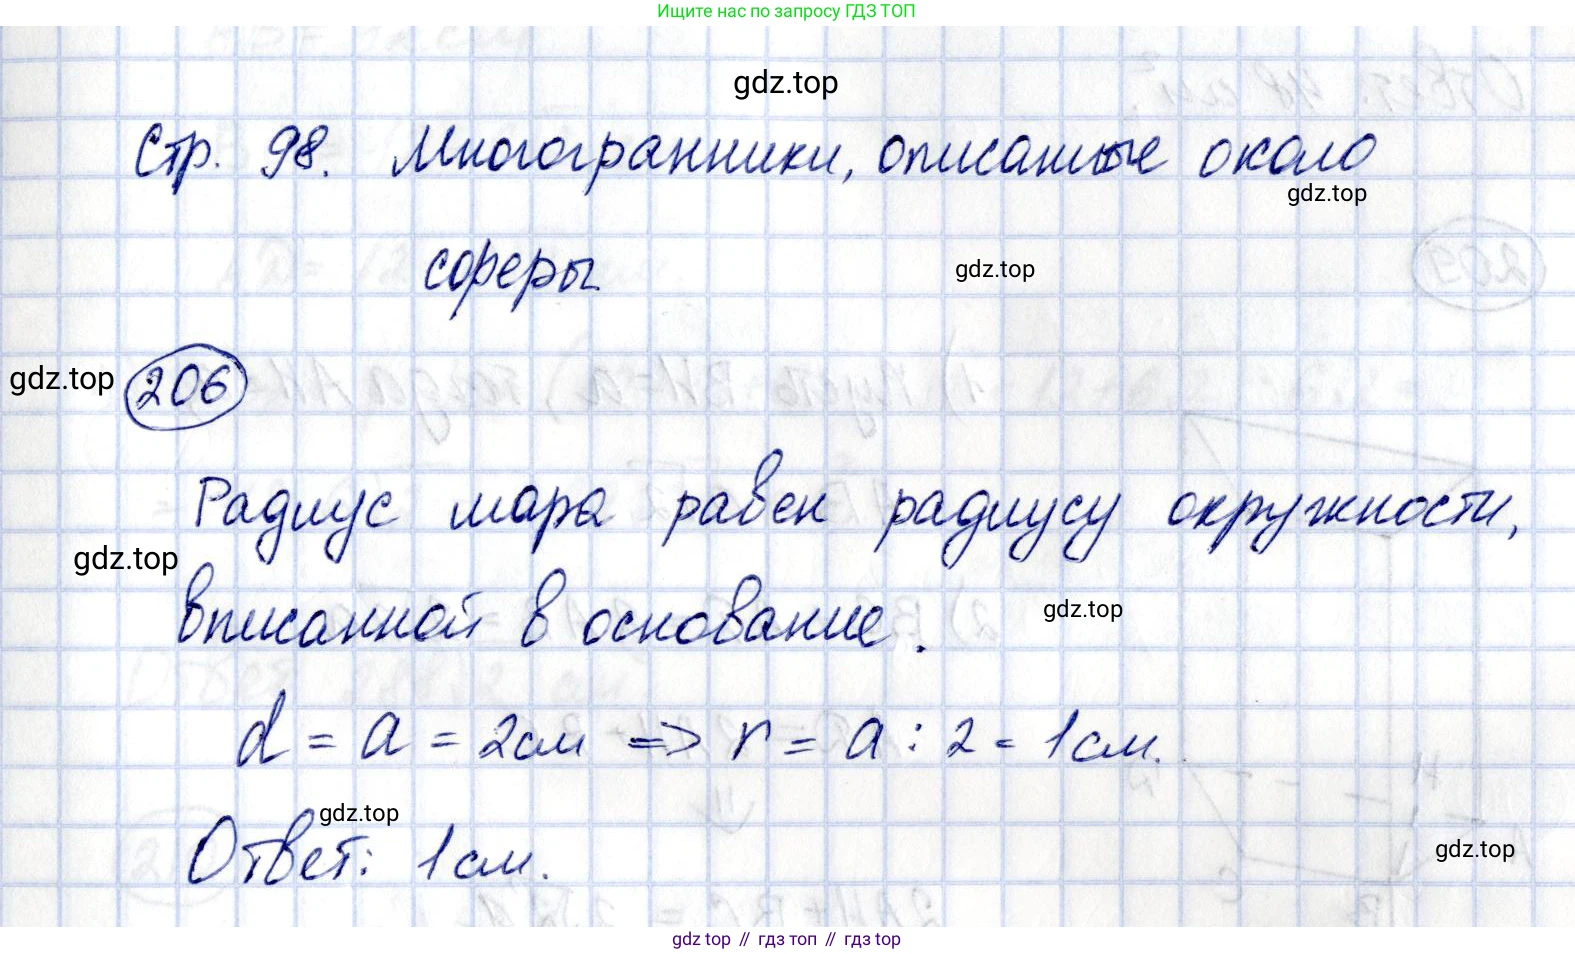 Ищите нас по запросу ГДЗ ТОП
gdz.top
Стр. 98. Многогранники, описанные около
gdz.top
сферы
gdz.top
gdz.top
206
Радиус шара равен радиусу окружности,
gdz.top
вписанной в основание.
gdz.top
d = a = 2см => r = a : 2 = 1см.
gdz.top
Ответ: 1см.
gdz.top
gdz top // гдз топ // гдз top